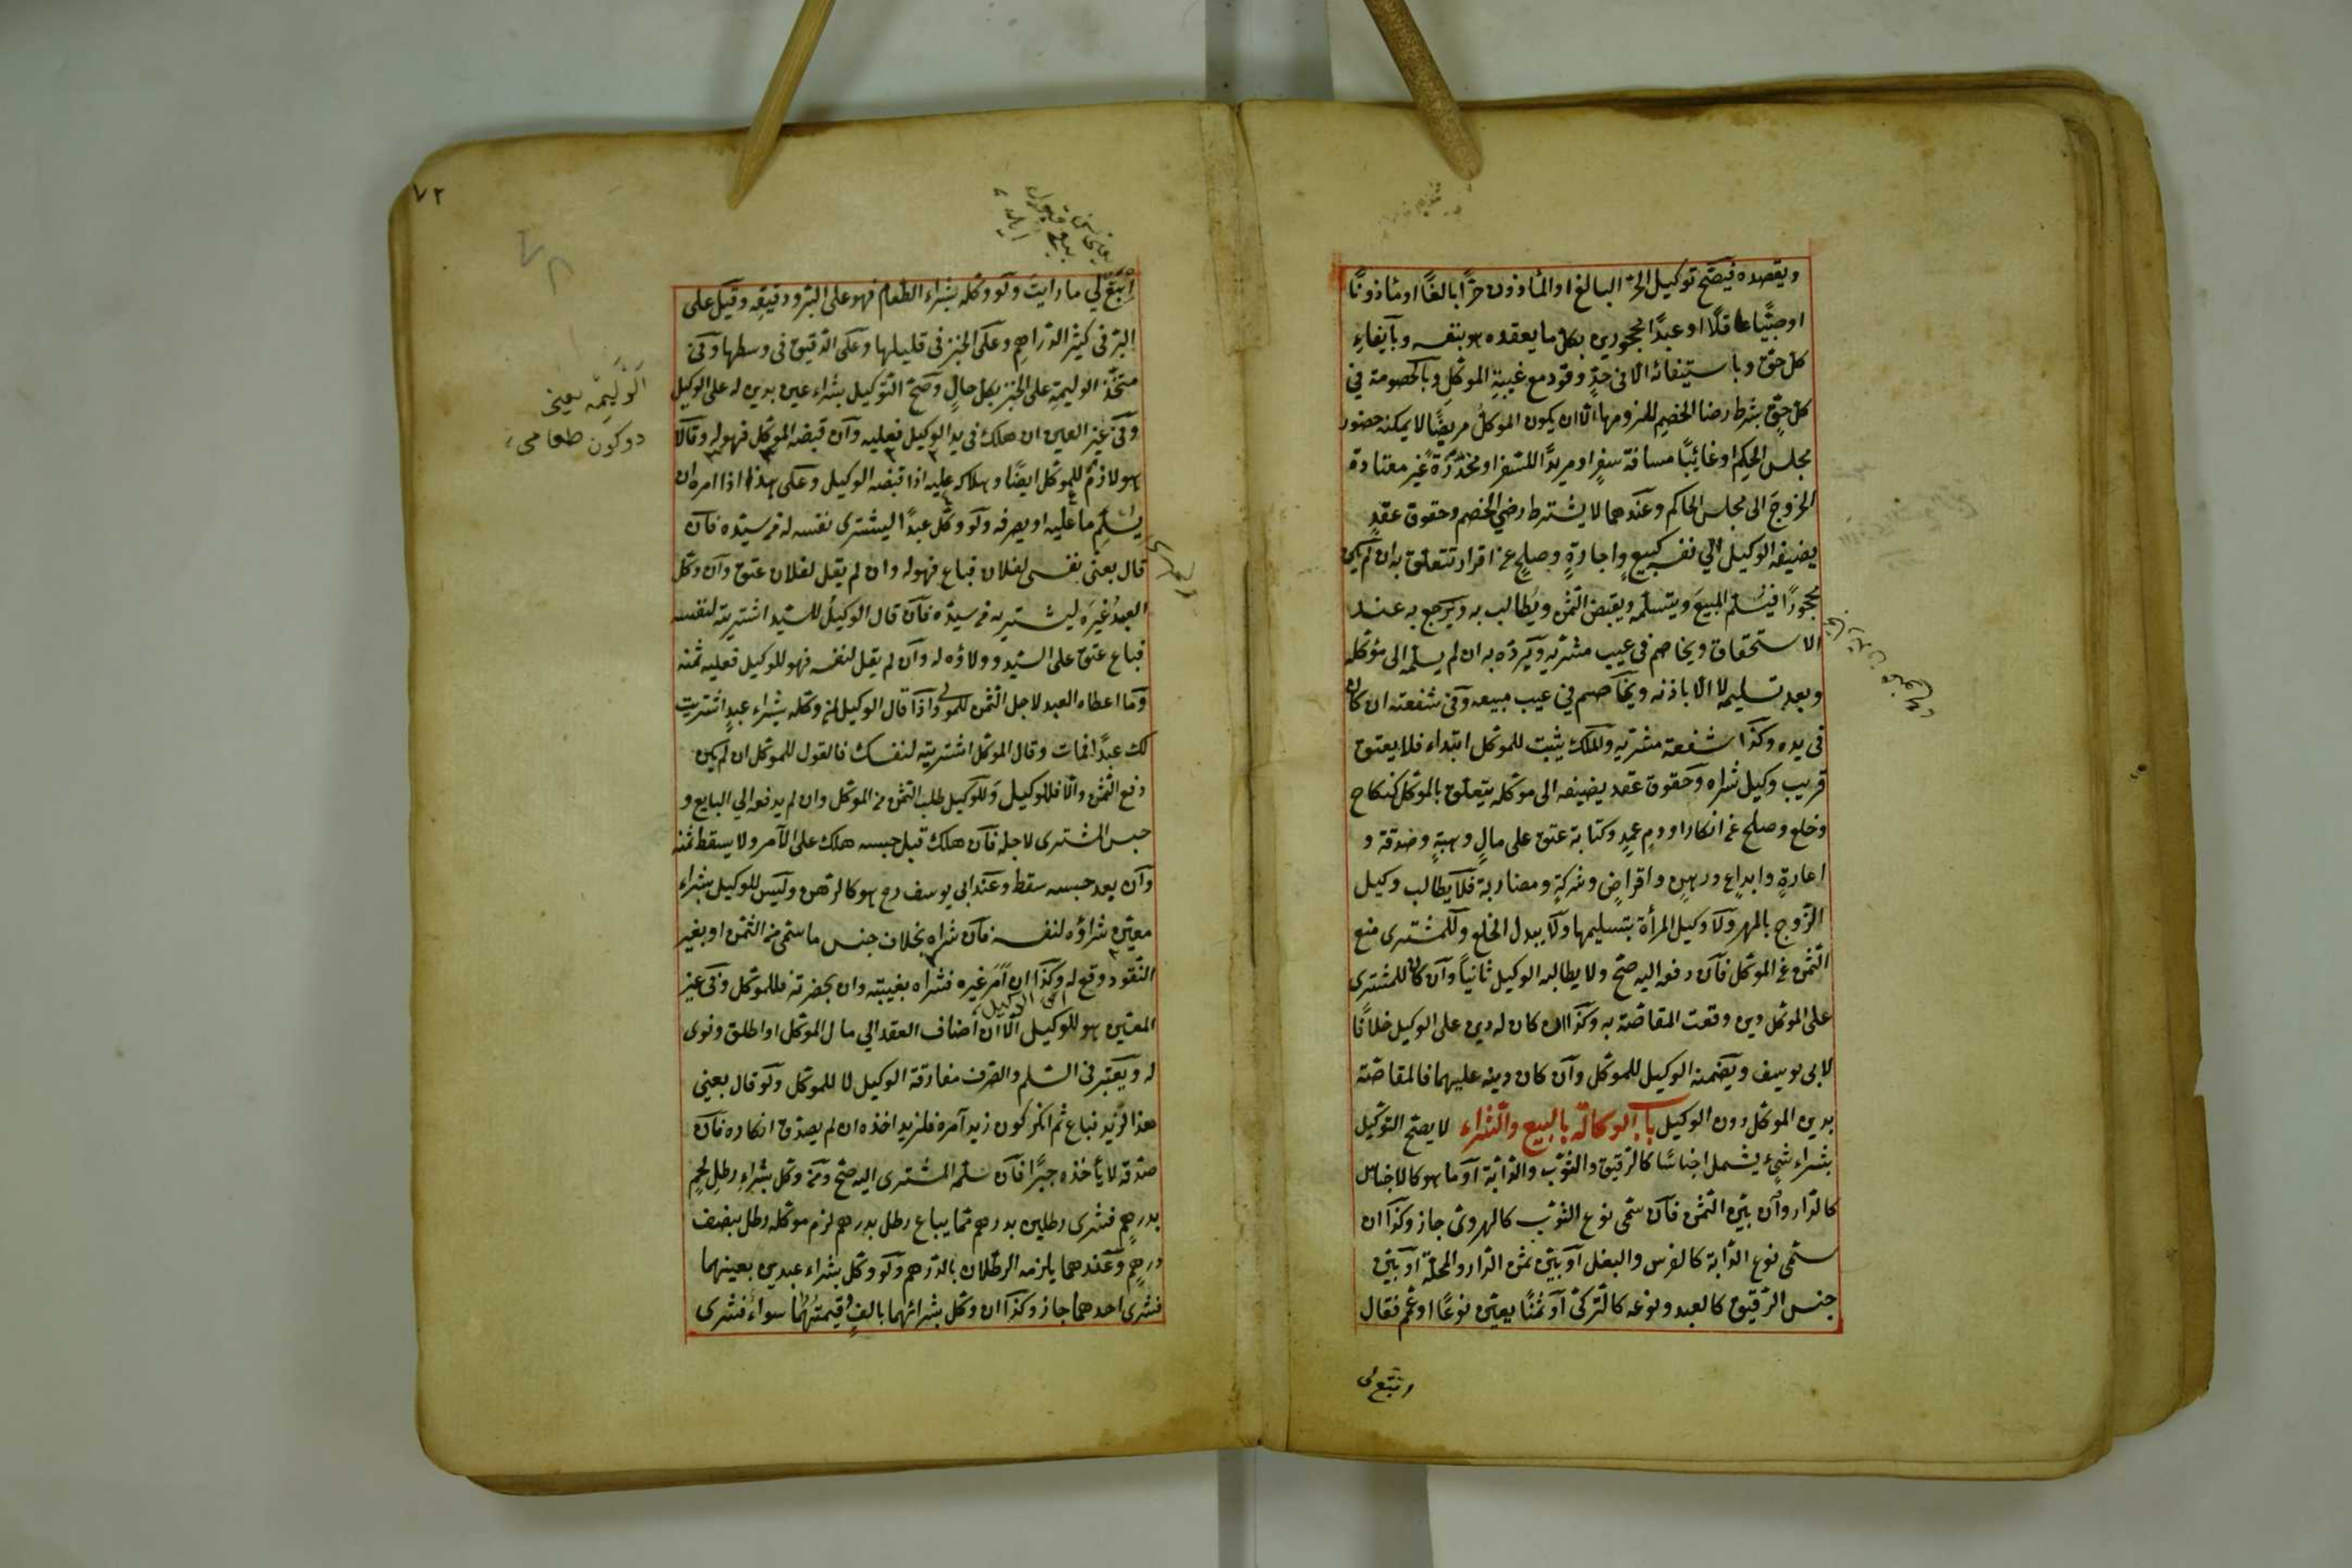 ويقصده فيصح توكيل الحر البالغ او المأذون حرًّا بالغًا او مأذونًا
او صبيًّا عاقلًا او عبدًا محجورين بكل ما يعقده هو بنفسه وبايفاء
كل حق وباستيفائه الا في حدٍّ وقود مع غيبة الموكل وبالخصومة في
كل حق بشرط رضا الخصم للزومها الا ان يكون الموكل مريضًا لا يمكنه حضور
مجلس الحكم او غائبًا مسافة سفرٍ او مريدًا للسفر او مخدّرةً غير معتادة
الخروج الى مجلس الحاكم وعندهما لا يشترط رضي الخصم وحقوق عقدٍ
يضيفه الوكيل الي نفسه كبيعٍ واجارةٍ وصلحٍ عن اقرار تتعلق به ان لم يكن
محجورًا فيسلم المبيع ويتسلمه ويقبض الثمن ويُطالب به ويرجع به عند
الاستحقاق ويخاصم في عيب مشتريه ويرده به ان لم يسلمه الى موكله
وبعد تسليمه لا الا باذنه ويخاصم في عيب مبيعه وفي شفعته ان كان
في يده وكذا شفعة مشتريه والملك يثبت للموكل ابتداء فلا يعتق
قريب وكيل شراه وحقوق عقد يضيفه الى موكله يتعلق بالموكل كنكاح
وخلع وصلح عن انكار او دم عمدٍ وكتابة عتق على مالٍ وهبةٍ وصدقة و
اعارةٍ وايداعٍ ورهنٍ واقراضٍ وشركةٍ ومضاربة فلا يطالب وكيل
الزوج بالمهر ولا وكيل المرأة بتسليمها ولا يبدل الخلع وللمشترى منع
الثمن عن الموكل فان دفعه اليه صح ولا يطالبه الوكيل ثانيًا وان كان للمشترى
على الموكل دين وقعت المقاصة به وكذا ان كان له دين على الوكيل خلافًا
لابى يوسف ويضمنه الوكيل للموكل وان كان دينه عليهما فالمقاصة
بدين الموكل دون الوكيل باب الوكالة بالبيع والشراء لا يصح التوكيل
بشراء شيء يشمل اجناسًا كالرقيق والثوب والدابة او ما هو كالاجناس
كالدار وان بين الثمن فان سمى نوع الثوب كالهروى جاز وكذا ان
سمى نوع الدابة كالفرس والبغل او بين ثمن الدار والمحلة او بين
جنس الرقيق كالعبد ونوعه كالتركى او ثمنًا يعين نوعًا او عمم فقال
ابتع لى
٧٢
ابتع لي ما رايت ولو وكله بشراء الطعام فهو على البر ودقيقه وقيل على
البر في كثير الدراهم وعلى الخبز فى قليلها وعلى الدقيق فى وسطها وفى
متخذ الوليمة على الخبز بكل حالٍ وصح التوكيل بشراء عين بدين له على الوكيل
وفى غير العين ان هلك في يد الوكيل فعليه وان قبضه الموكل فهو له وقالا
هو لازم للموكل ايضًا وهلاكه عليه اذا قبضه الوكيل وعلى هذا اذا امره ان
يسلم ما عليه او يصرفه ولو وكل عبدًا ليشترى نفسه له من سيده فان
قال بعنى نفسى لفلان فباع فهو له وان لم يقل لفلان عتق وان وكل
العبدُ غيرَه ليشتريه من سيده فان قال الوكيلُ للسيد اشتريته لنفسه
فباع عتق على السيد وولاؤه له وان لم يقل لنفسه فهو للوكيل فعليه ثمنه
وما اعطاه العبد لاجل الثمن للمولى واذا قال الوكيل لمن وكله بشراء عبدٍ اشتريت
لك عبدًا فمات وقال الموكل اشتريته لنفسك فالقول للموكل ان لم يكن
دفع الثمن والا فللوكيل وللوكيل طلب الثمن من الموكل وان لم يدفعه الي البايع و
حبس المشترى لاجله فان هلك قبل حبسه هلك على الآمر ولا يسقط ثمنه
وان بعد حبسه سقط وعند ابي يوسف رح هو كالرهن وليس للوكيل بشراء
معين شراؤه لنفسه فان شراه بخلاف جنس ما سمى من الثمن او بغير
النقود وقع له وكذا ان امر غيره فشراه بغيبته وان بحضرته فللموكل وفى غير
المعين هو للوكيل الا ان اضاف العقد الي مال الموكل او اطلق ونوى
اى الوكيل
له ويعتبر فى السلم والصرف مفارقة الوكيل لا للموكل ولو قال بعنى
هذا لزيد فباع ثم انكر كون زيد آمره فلزيد اخذه ان لم يصدق انكاره فان
صدقه لا يأخذه جبرًا فان سلمه المشترى اليه صح ومن وكل بشراءِ رطلِ لحمٍ
بدرهمٍ فشرى رطلين بدرهم مما يباع رطل بدرهم لزم موكله رطل بنصف
درهمٍ وعندهما يلزمه الرطلان بالدرهم ولو وكل بشراء عبدين بعينهما
فشرى احدهما جاز وكذا ان وكل بشرائهما بالفٍ وقيمتهما سواء فشرى
الوليمه يعنى
دوكون طعامى